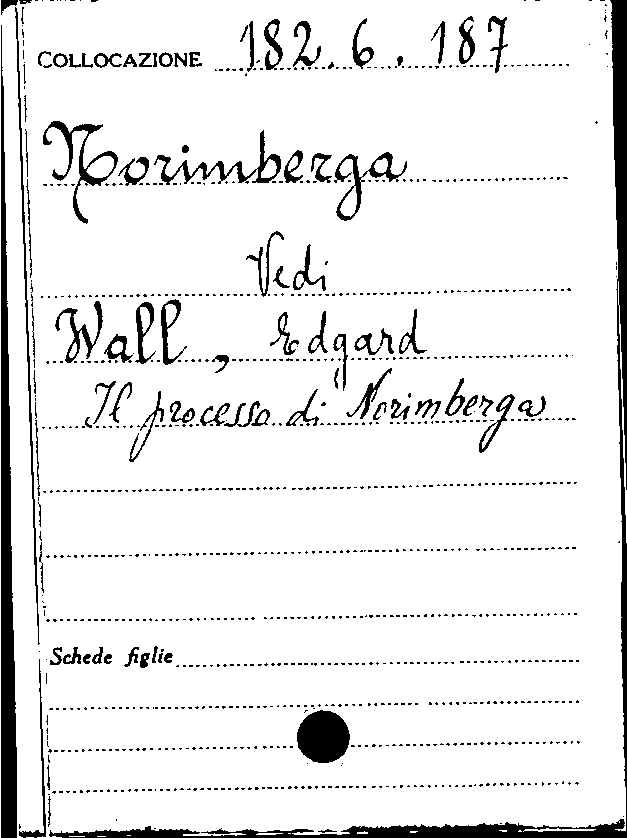 COLLOCAZIONE 182.6.187
Norimberga
Vedi
Wall, Edgard
Il processo di Norimberga
Schede figlie